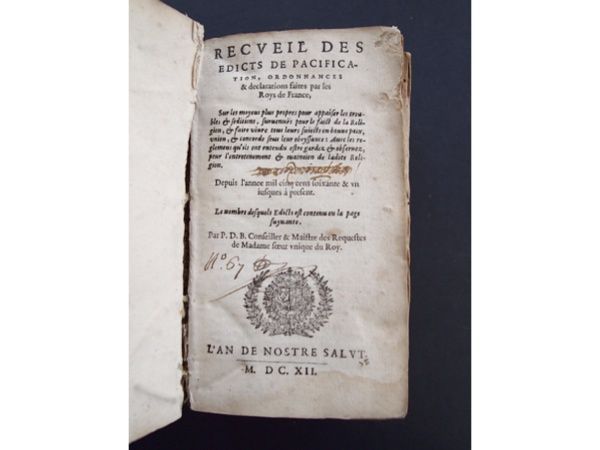 RECVEIL DES
EDICTS DE PACIFICA-
TION, ORDONNANCES
& declarations faites par les
Roys de France,
Sur les moyens plus propres pour appaiser les trou-
bles & seditions, suruenues pour le faict de la Reli-
gion, & faire viure tous leurs suiects en bonne paix,
vnion, & concorde sous leur obeyssance. Auec les re-
glemens qu'ils ont entendu estre gardez & obseruez,
pour l'entretenement & maintien de ladite Reli-
gion.
Depuis l'annee mil cinq cens soixante & vn
iusques à present.
Le nombre desquels Edicts est contenu en la page
suyuante.
Par P. D. B. Conseiller & Maistre des Requestes
de Madame sœur vnique du Roy.
N°. 67
L'AN DE NOSTRE SALVT.
M. DC. XII.